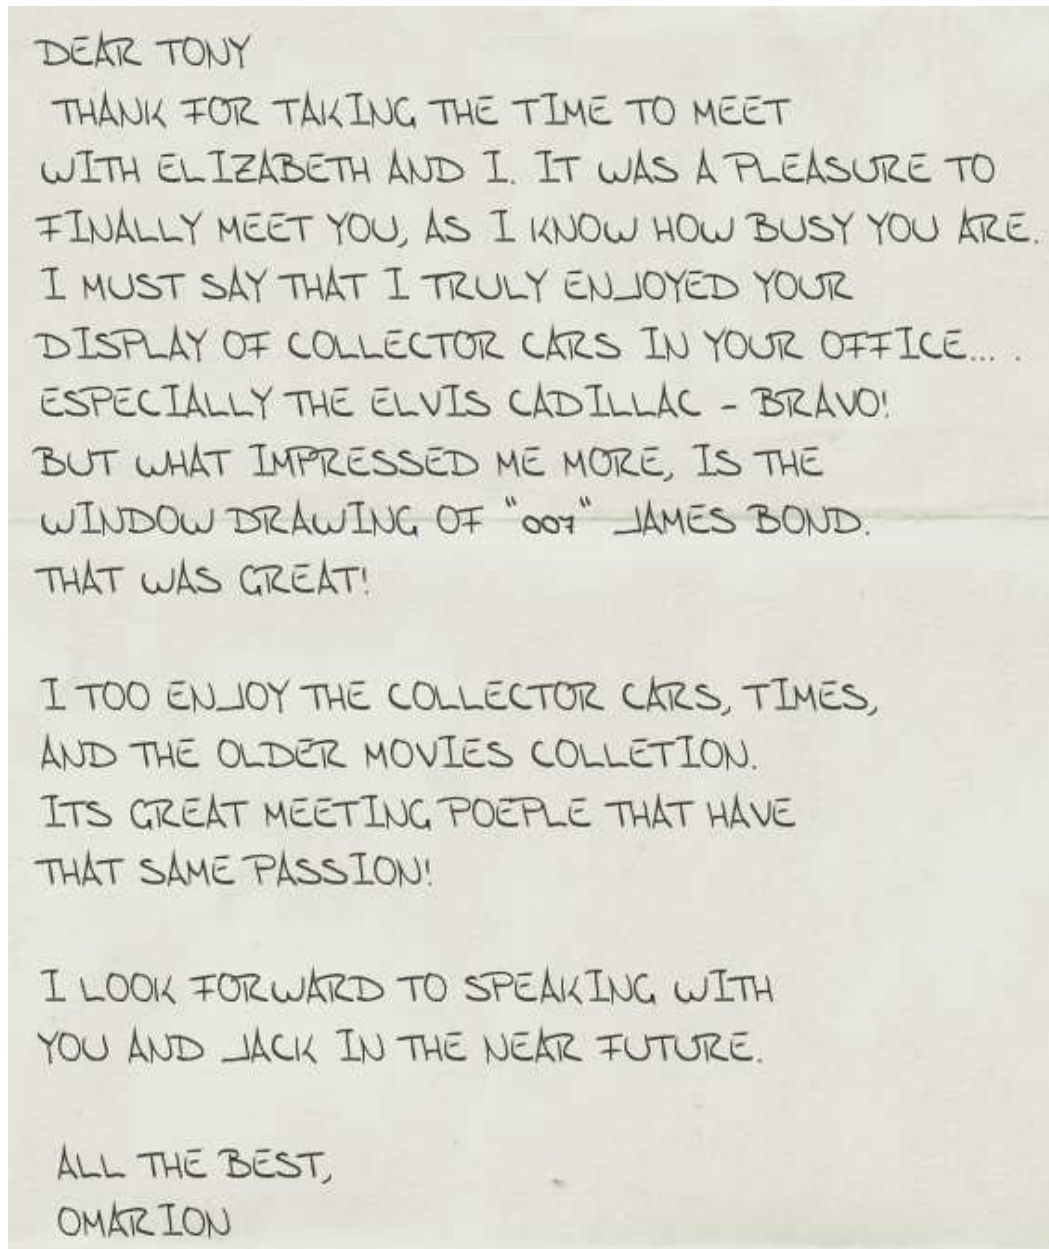 DEAR TONY
THANK FOR TAKING THE TIME TO MEET
WITH ELIZABETH AND I. IT WAS A PLEASURE TO
FINALLY MEET YOU, AS I KNOW HOW BUSY YOU ARE.
I MUST SAY THAT I TRULY ENJOYED YOUR
DISPLAY OF COLLECTOR CARS IN YOUR OFFICE... .
ESPECIALLY THE ELVIS CADILLAC - BRAVO!
BUT WHAT IMPRESSED ME MORE, IS THE
WINDOW DRAWING OF "007" JAMES BOND.
THAT WAS GREAT!
I TOO ENJOY THE COLLECTOR CARS, TIMES,
AND THE OLDER MOVIES COLLETION.
ITS GREAT MEETING POEPLE THAT HAVE
THAT SAME PASSION!
I LOOK FORWARD TO SPEAKING WITH
YOU AND JACK IN THE NEAR FUTURE.
ALL THE BEST,
OMARION